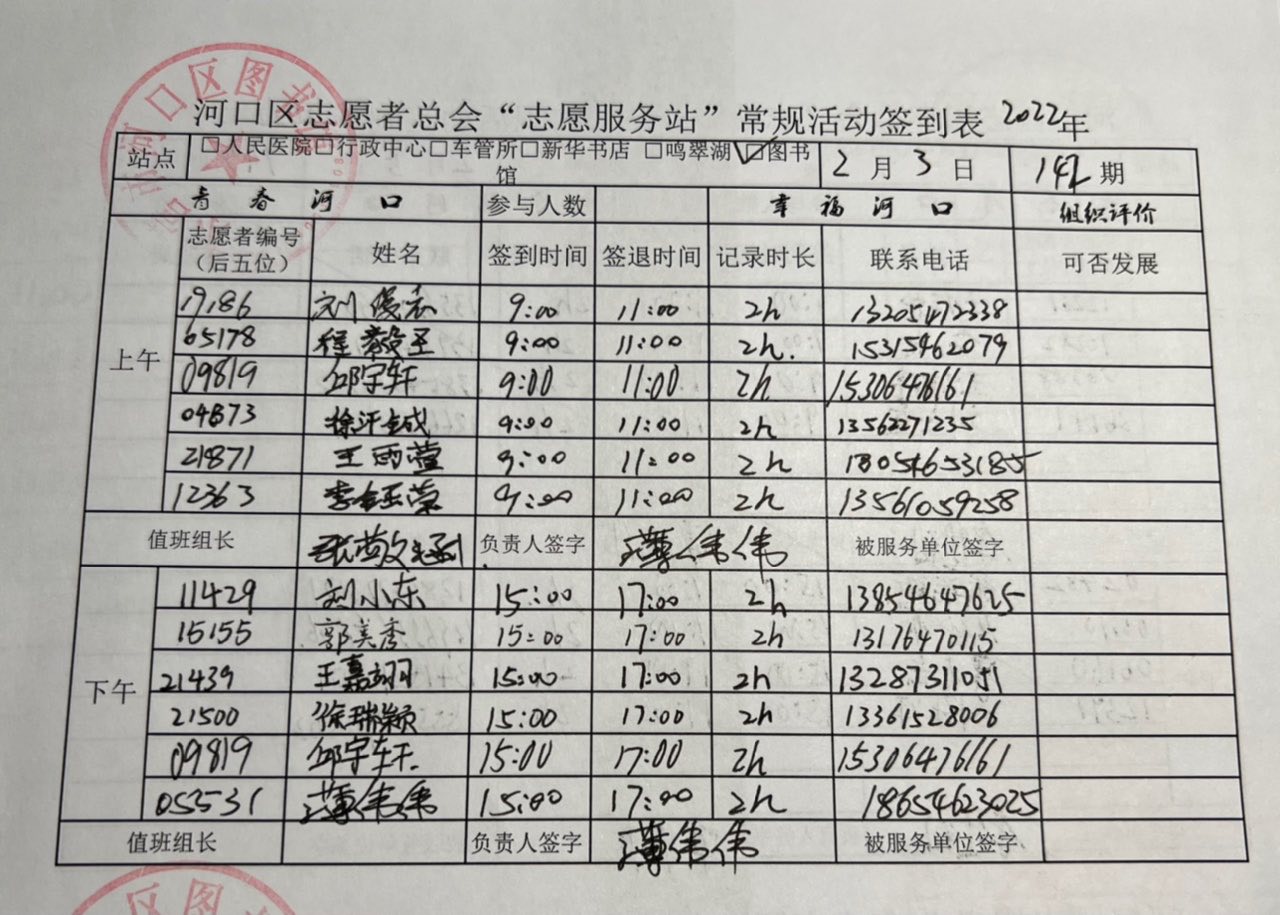 河口区图书馆
河口区志愿者总会“志愿服务站”常规活动签到表 2022年
站点 □人民医院□行政中心□车管所□新华书店 □鸣翠湖 ☑图书馆 2月3日 142期
青春河口 参与人数 幸福河口 组织评价
志愿者编号（后五位） 姓名 签到时间 签退时间 记录时长 联系电话 可否发展
上午
19186 刘俊志 9:00 11:00 2h 13205472338
65178 程毅圣 9:00 11:00 2h. 15315462079
09819 邱宇轩 9:00 11:00 2h 15306476161
04873 徐 9:00 11:00 2h 13562271235
21871 王雨萱 9:00 11:00 2h 18054653185
12363 李金玉莹 9:00 11:00 2h 13561059258
值班组长 张敬涵 负责人签字 薄伟伟 被服务单位签字
下午
11429 刘小东 15:00 17:00 2h 13854647625
15155 郭美秀 15:00 17:00 2h 13176470115
21439 王嘉翊 15:00 17:00 2h 13287311051
21500 徐瑞颖 15:00 17:00 2h 13361528006
09819 邱宇轩 15:00 17:00 2h 15306476161
055531 薄伟伟 15:00 17:00 2h 18654623025
值班组长 负责人签字 薄伟伟 被服务单位签字
区图书